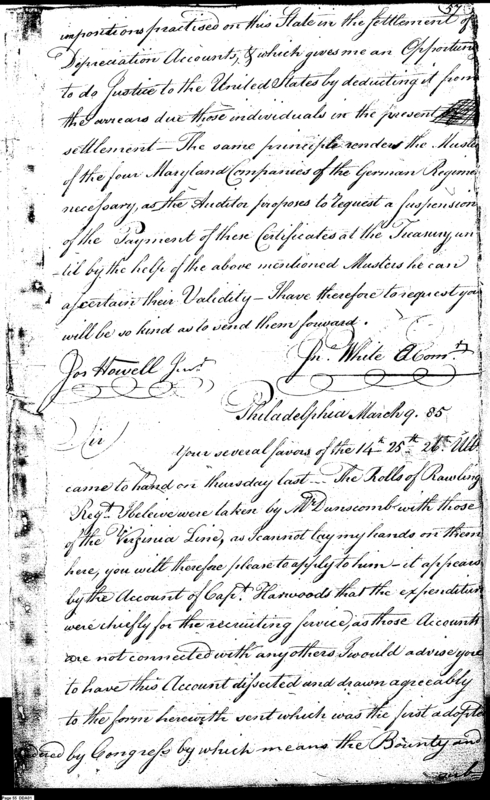 57
impositions practised on this State in the settlement of
Depreciation Accounts, & which gives me an Opportuny
to do Justice to the United States by deducting it from
the arrears due those individuals in the present
settlement — The same principle renders the Muster
of the four Maryland Companies of the German Regimen
necessary, as the Auditor proposes to request a suspension
of the Payment of these Certificates at the Treasury, un
-til by the help of the above mentioned Musters he can
ascertain their Validity — I have therefore to request you
will be so kind as to send them forward.
Jos Howell Junr. Jno. White AComr.
Philadelphia March 9. 85
Sir
Your several favors of the 14th 25th 26th Ult
came to hand on thursday last — The Rolls of Rawling
Regt. I beleive were taken by Mr Dunscomb with those
of the Virginia Line, as I cannot lay my hands on them
here, you will therefore please to apply to him — it appears
by the Account of Capt. Harwoods that the expenditure
were chiefly for the recruiting service, as those Accounts
are not connected with any others I would advise you
to have this Account dissected and drawn agreeably
to the form herewith sent which was the first adopted
by Congress by which means the Bounty and